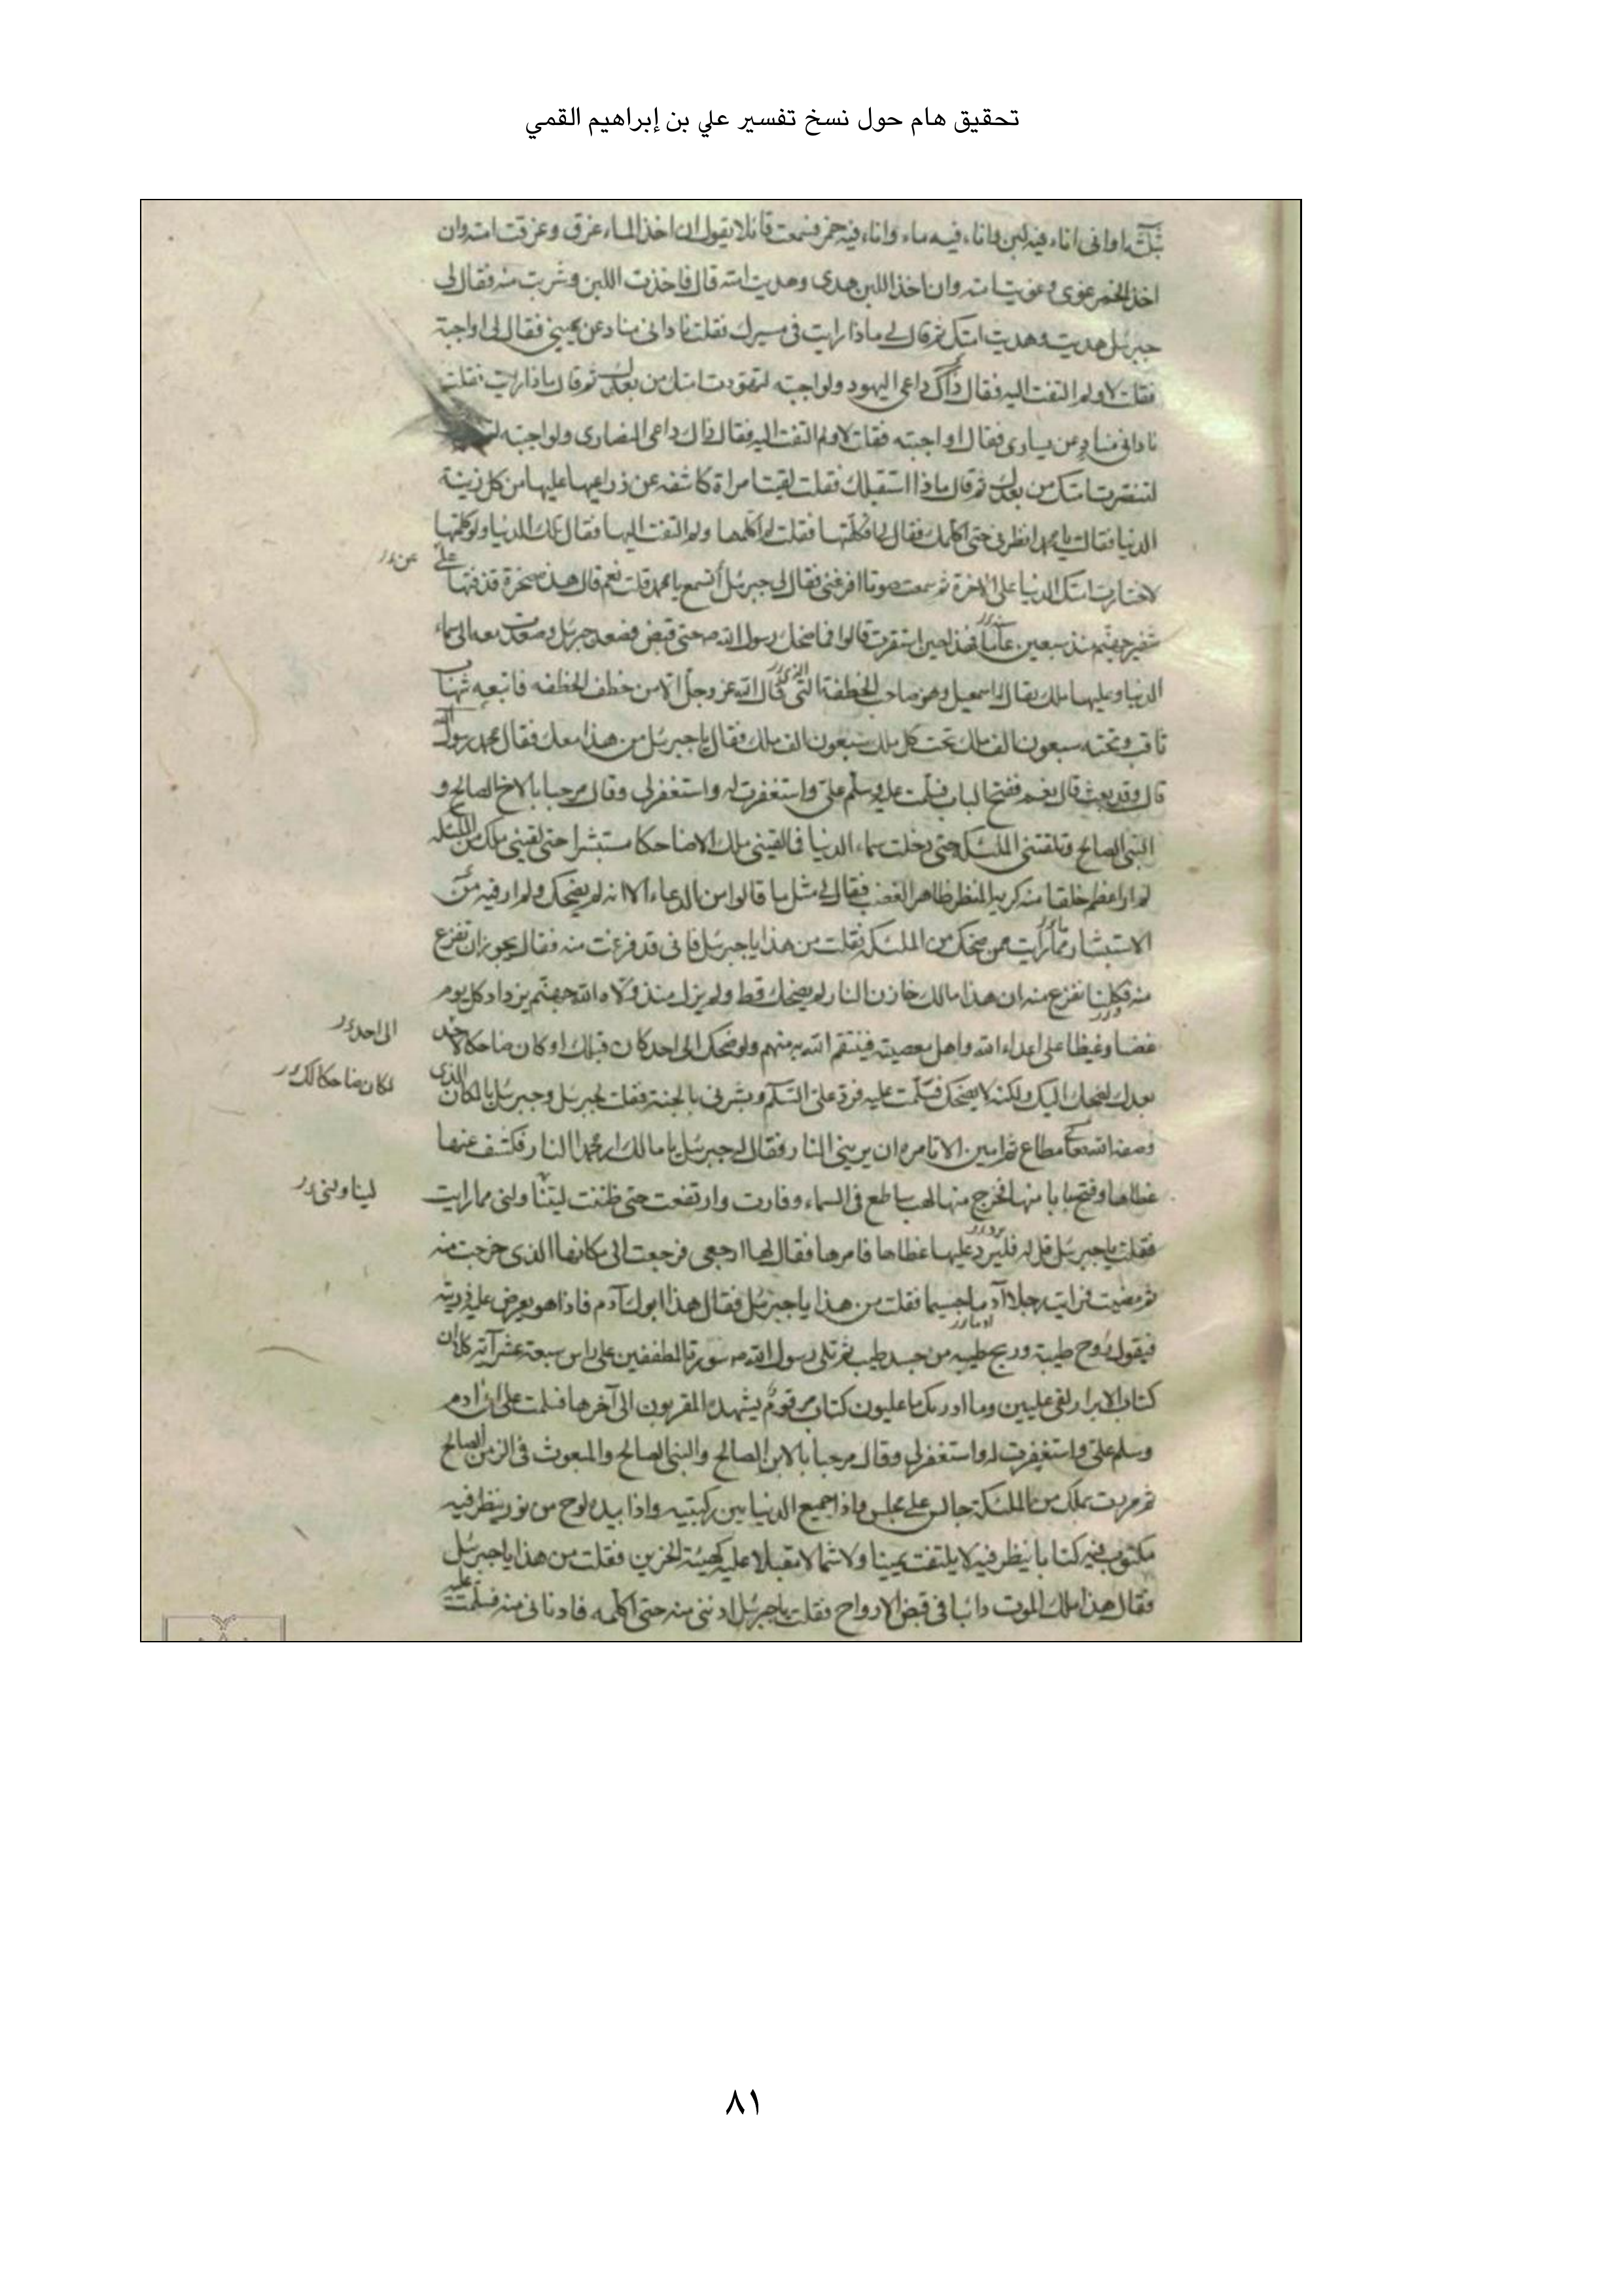 تحقيق هام حول نسخ تفسير علي بن إبراهيم القمي
بثلثة اوانى اناء فيه لبن واناء فيه ماء واناء فيه خمر فسمعت قائلا يقول ان اخذ الماء غرق وغرقت امته وان
اخذ الخمر غوى وغويت امته وان اخذ اللبن هدى وهديت امته قال فاخذت اللبن وشربت منه فقال لى
جبرئل هديت وهديت امتك ثم قال لى ماذا رايت فى مسيرك فقلت نادانى مناد عن يمينى فقال لى اواجبته
فقلت لا ولم التفت اليه فقال ذاك داعى اليهود ولو اجبته لتهودت امتك من بعدك ثم قال ماذا رايت فقلت
نادانى مناد عن يسارى فقال اواجبته فقلت لا ولم التفت اليه فقال ذاك داعى النصارى ولو اجبته
لتنصرت امتك من بعدك ثم قال ماذا استقبلك فقلت لقيت امراة كاشفه عن ذراعيها عليها من كل زينة
الدنيا فقالت يا محمد انظرنى حتى اكلمك فقال لى افكلمتها فقلت لم اكلمها ولم التفت اليها فقال تلك الدنيا ولو كلمتها
لاختارت امتك الدنيا على الاخرة ثم سمعت صوتا افزعنى فقال لى جبرئل أتسمع يا محمد قلت نعم قال هذه صخرة قذفتها على
عن
شفير جهنم منذ سبعين عاما فهذا حين استقرت قالوا فما ضحك رسول الله ص حتى قبض فصعد جبرئل وصعدت معه الى سماء
الدنيا وعليها ملك يقال له اسمعيل وهو صاحب الخطفة التى قال الله عز وجل الا من خطف الخطفه فاتبعه شهاب
ثاقب وتحته سبعون الف ملك تحت كل ملك سبعون الف ملك فقال يا جبرئل من هذا معك فقال محمد رسول الله
قال وقد بعث قال نعم ففتح الباب فسلمت عليه وسلم على واستغفرت له واستغفر لى وقال مرحبا بالاخ الصالح و
النبى الصالح وتلقتنى الملئكة حتى دخلت سماء الدنيا فما لقينى ملك الا ضاحكا مستبشرا حتى لقينى ملك من الملئكه
لم ار اعظم خلقا منه كريه المنظر ظاهر الغضب فقال لى مثل ما قالوا من الدعاء الا انه لم يضحك ولم ار فيه من
الاستبشار مما رايت ممن ضحك من الملئكة فقلت من هذا يا جبرئل فانى قد فزعت منه فقال يجوز ان تفزع
منه فكلنا نفزع منه ان هذا مالك خازن النار لم يضحك قط ولم يزل منذ ولاه الله جهنم يزداد كل يوم
غضبا وغيظا على اعداء الله واهل معصيته فينتقم الله به منهم ولو ضحك الى احد كان قبلك او كان ضاحكا لاحد
الى احد
بعدك لضحك اليك ولكنه لا يضحك فسلمت عليه فرد على السلم وبشرنى بالجنة فقلت لجبرئل وجبرئل بالمكان الذى
لكان ضاحكا لك
وصفه الله تعالى مطاع ثم امين الا تامره ان يرينى النار فقال له جبرئل يا مالك ار محمدا النار فكشف عنها
غطاءها وفتح بابا منها فخرج منها لهب ساطع فى السماء وفارت وارتفعت حتى ظننت ليتنا ولنى مما رايت
ليناولنى
فقلت يا جبرئل قل له فليرد عليها غطاءها فامرها فقال لها ارجعى فرجعت الى مكانها الذى خرجت منه
ثم مضيت فرايت رجلا آدما جسيما فقلت من هذا يا جبرئل فقال هذا ابوك آدم فاذا هو يعرض عليه ذريته
فيقول روح طيبة وريح طيبه من جسد طيب ثم تلى رسول الله ص سورة المطففين على راس سبعة عشر آية كلا ان
كتاب الابرار لفى عليين وما ادريك ما عليون كتاب مرقوم يشهده المقربون الى آخرها فسلمت على ابى ادم
وسلم على واستغفرت له واستغفر لى وقال مرحبا بالابن الصالح والنبى الصالح والمبعوث فى الزمن الصالح
ثم مررت بملك من الملئكة جالس على مجلس واذا جميع الدنيا بين ركبتيه واذا بيده لوح من نور ينظر فيه
مكتوب فيه كتابا ينظر فيه لا يلتفت يمينا ولا شمالا مقبلا عليه كهيئة الحزين فقلت من هذا يا جبرئل
فقال هذا ملك الموت دائبا فى قبض الارواح فقلت يا جبرئل ادننى منه حتى اكلمه فادنانى منه فسلمت عليه
٨١